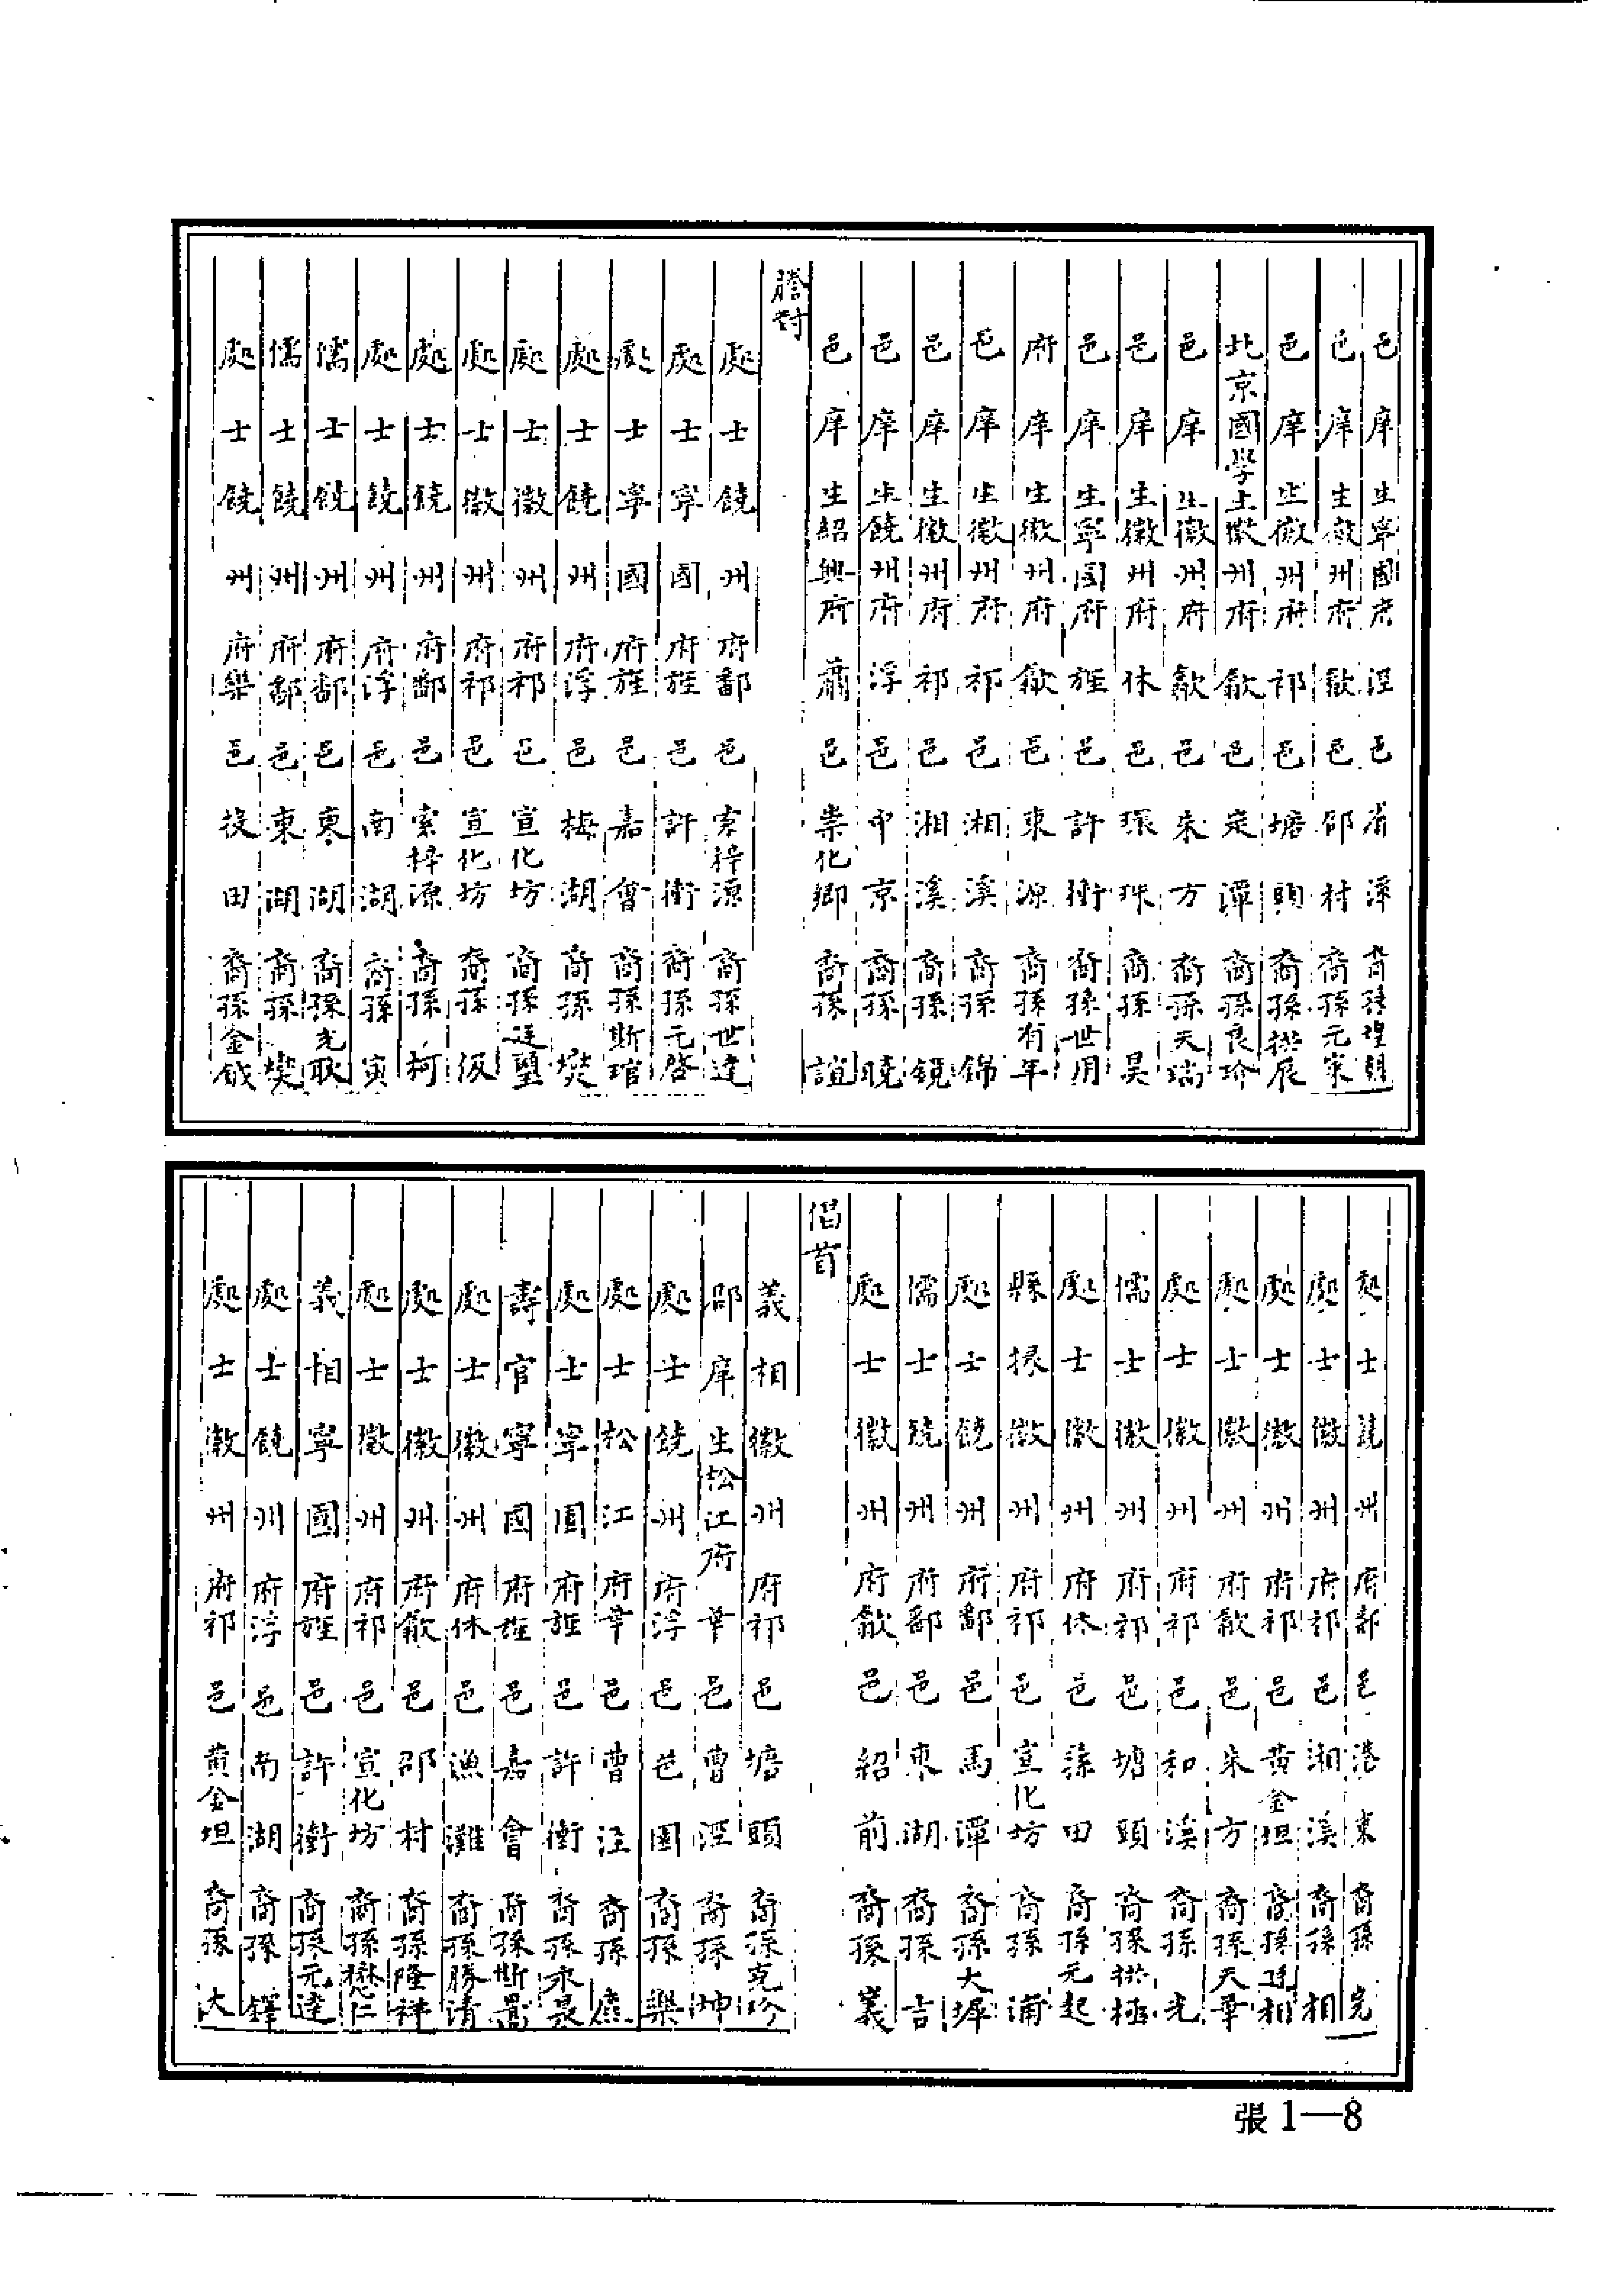 邑庠生寧國府涇邑省潭裔孫埕朝
邑庠生徽州府歙邑邵村裔孫元寀
邑庠生徽州府祁邑塘頭裔孫拱辰
北京國學生徽州府歙邑定潭裔孫良玠
邑庠生徽州府歙邑朱方裔孫天瑞
邑庠生徽州府休邑環珠裔孫昊
邑庠生寧國府旌邑許衝裔孫世用
府庠生徽州府歙邑東源裔孫有年
邑庠生徽州府祁邑湘溪裔孫錦
邑庠生徽州府祁邑湘溪裔孫鏡
邑庠生饒州府浮邑中京裔孫曉
邑庠生紹興府蕭邑崇化鄉裔孫誼
謄對
處士饒州府鄱邑索梓源裔孫世達
處士寧國府旌邑許衝裔孫元啓
處士寧國府旌邑嘉會裔孫斯琯
處士饒州府浮邑梅湖裔孫燓
處士徽州府祁邑宣化坊裔孫廷璽
處士徽州府祁邑宣化坊裔孫伋
處士饒州府鄱邑索梓源裔孫柯
處士饒州府浮邑南湖裔孫寅
儒士饒州府鄱邑東湖裔孫光耿
儒士饒州府鄱邑東湖裔孫燓
處士饒州府樂邑役田裔孫金鉞
處士饒州府鄱邑港東裔孫完
處士徽州府祁邑湘溪裔孫相
處士徽州府祁邑黃金坦裔孫廷相
處士徽州府歙邑朱方裔孫天華
處士徽州府祁邑和溪裔孫光
儒士徽州府祁邑塘頭裔孫拱極
處士徽州府休邑蓀田裔孫元起
縣掾徽州府祁邑宣化坊裔孫浦
處士饒州府鄱邑馬潭裔孫大墀
儒士饒州府鄱邑東湖裔孫吉
處士徽州府歙邑紹前裔孫義
倡首
義相徽州府祁邑塘頭裔孫克珍
郡庠生松江府華邑曹涇裔孫坤
處士饒州府浮邑邑園裔孫樂
處士松江府華邑曹涇裔孫
處士寧國府旌邑許衝裔孫永晟
壽官寧國府旌邑嘉會裔孫斯暠
處士徽州府休邑漁灘裔孫勝清
處士徽州府歙邑邵村裔孫隆祥
處士徽州府祁邑宣化坊裔孫懋仁
義相寧國府旌邑許衝裔孫元達
處士饒州府浮邑南湖裔孫鐸
處士徽州府祁邑黃金坦裔孫大
張1—8